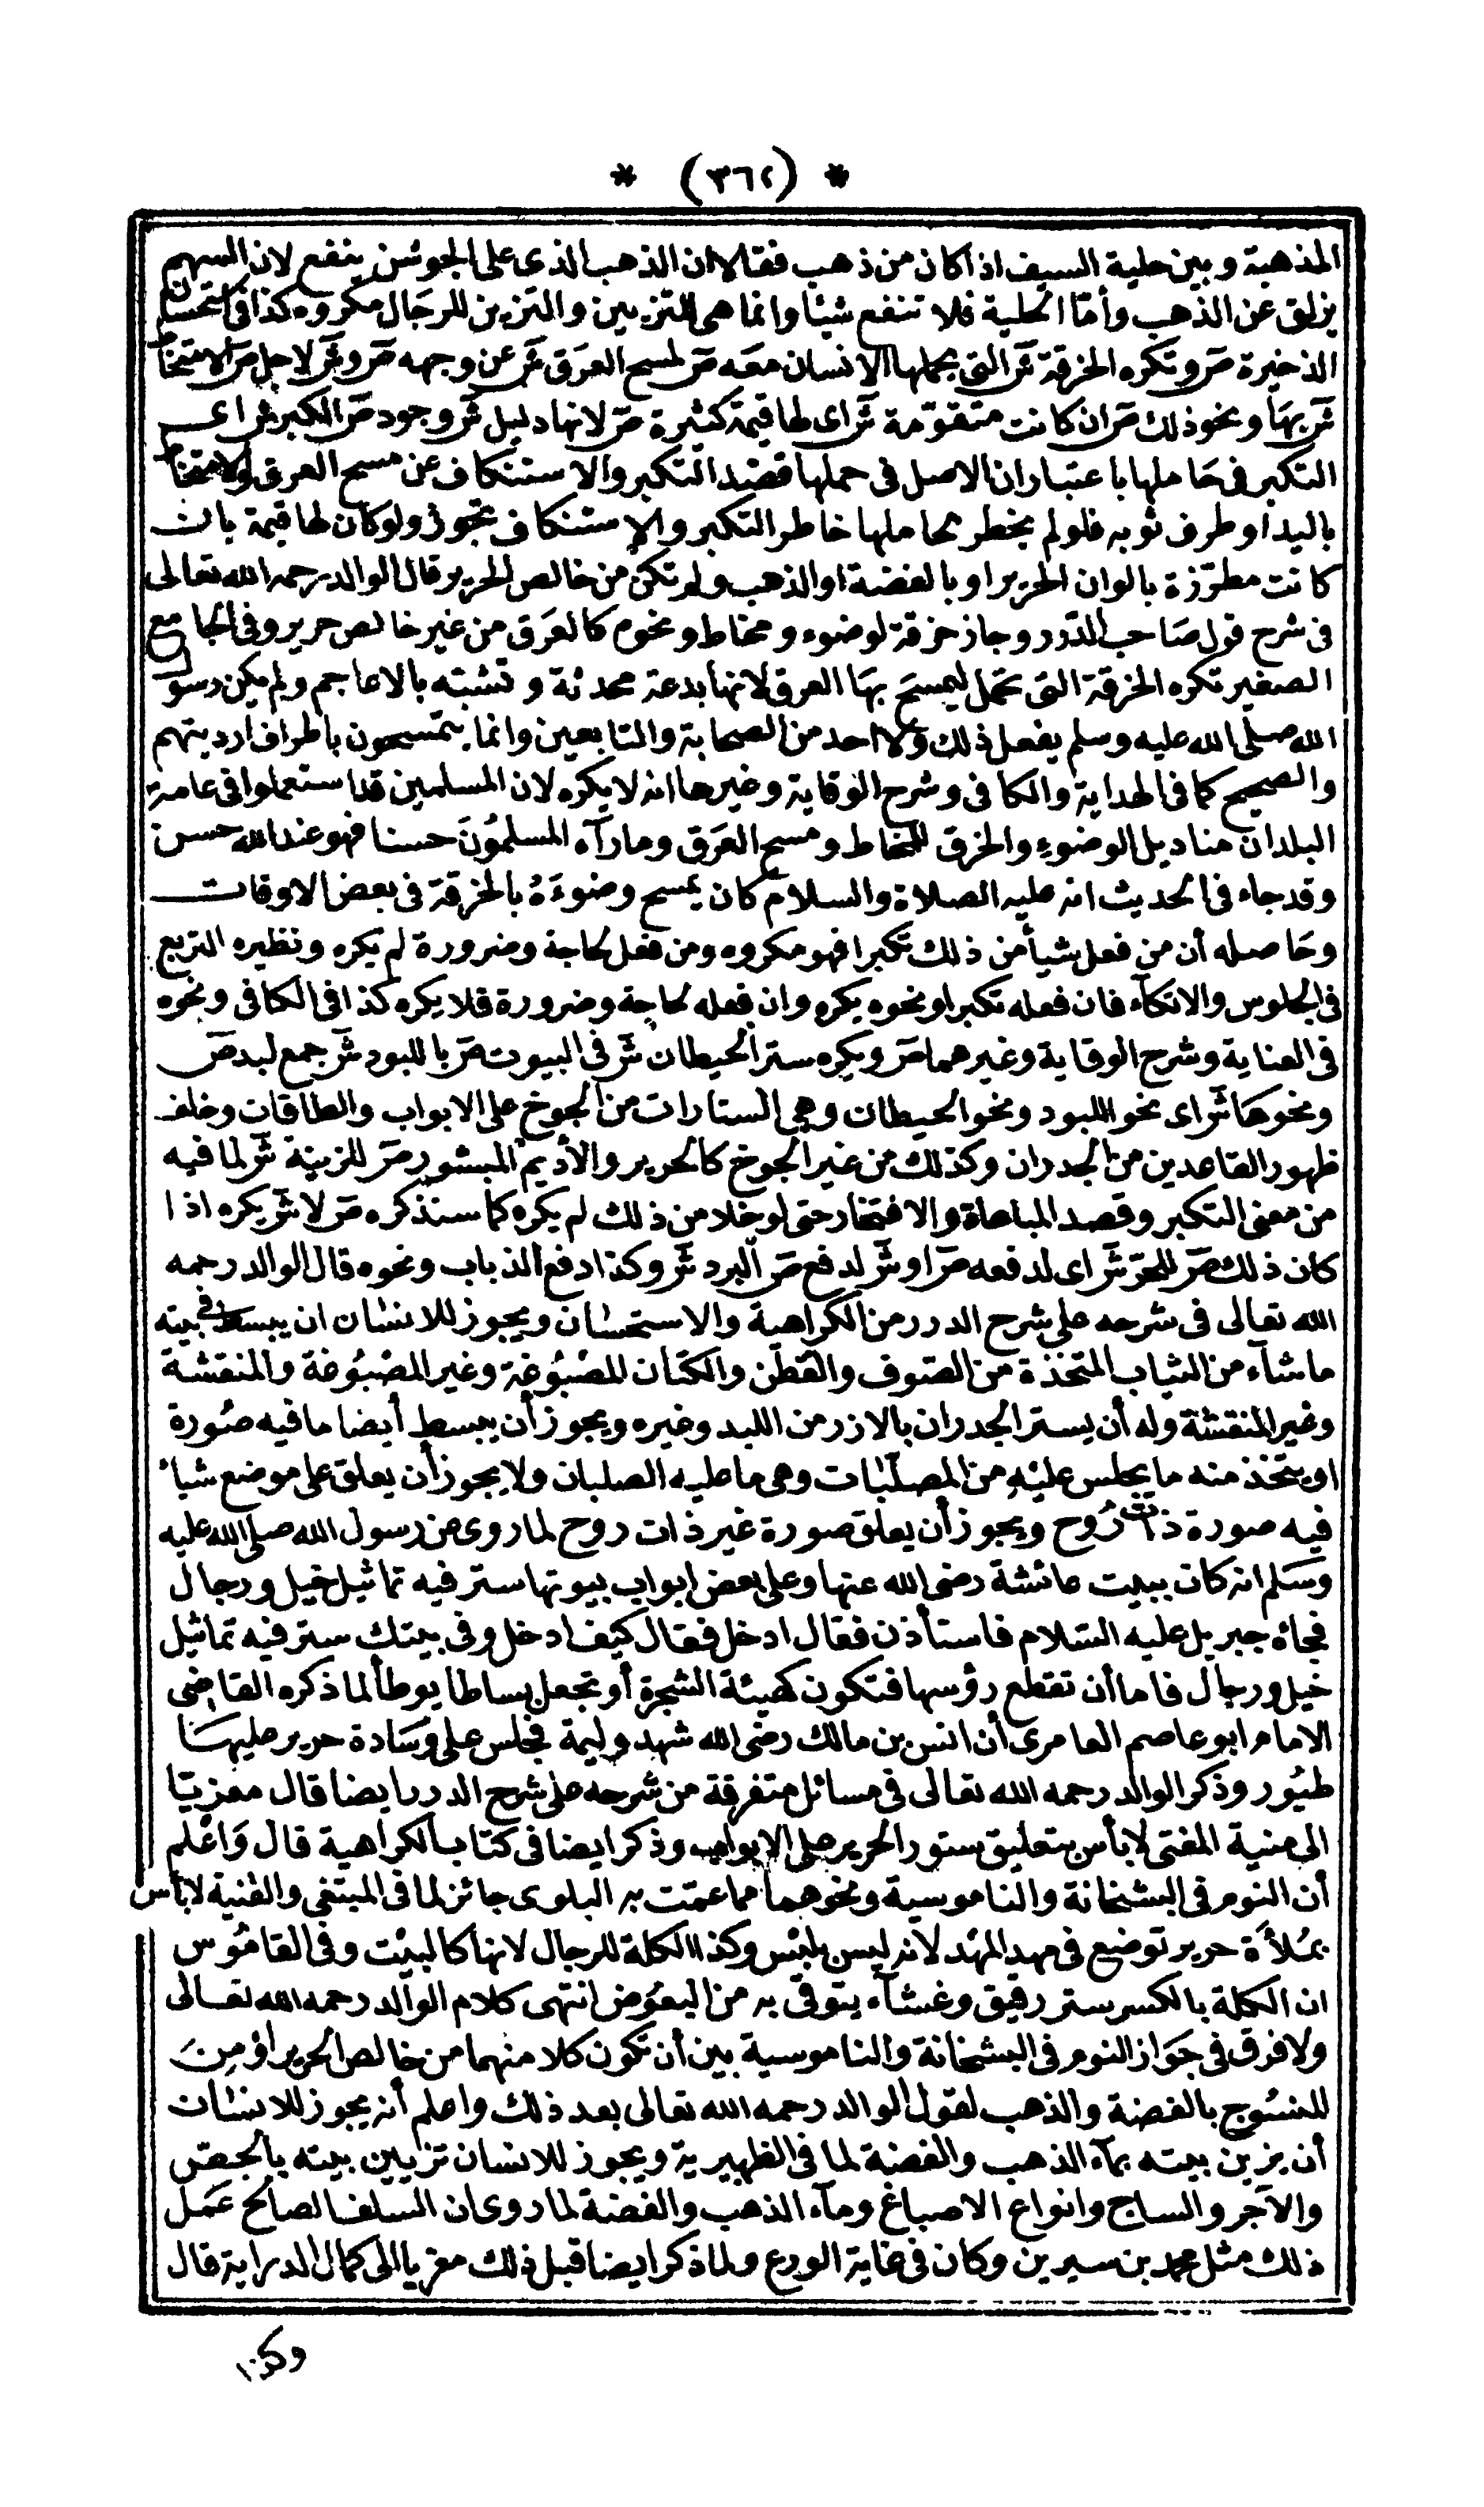 * (٣٦٢) *
المذهبة وبين حلية السيف اذا كان من ذهب فقالا ان الذهب الذى على الجوشن ينفع لان السهم
يزلق عن الذهب وأمّا الحلية فلا تنفع شيئا وانما هى للتزيين والتزين للرجال مكروه كذا فى استحسان
الذخيرة ص وتكره الخرقة ش التى يحملها الانسان معه ص لمسح العرق ش عن وجهه ص و ش لاجل ص الامتخاط
ش بها ونحو ذلك ص ان كانت متقوّمة ش اى لها قيمة كثيرة ص لانها دليل ش وجود ص الكبر ش اى
التكبر فى حاملها باعتبار ان الاصل فى حملها قصد التكبر والاستنكاف عن مسح العرق والامتخاط
باليد او طرف ثوبه فلو لم يخطر بحاملها خاطر التكبر والاستنكاف تجوز ولو كان لها قيمة بان
كانت مطرّزة بالوان الحرير او بالفضة او الذهب ولم تكن من خالص الحرير قال الوالد رحمه الله تعالى
فى شرح قول صاحب الدرر وجاز خرقة لوضوء ومخاط ونحوه كالعرق من غير خالص حرير وفى الجامع
الصغير تكره الخرقة التى تحمل ليمسح بها العرق لانها بدعة محدثة وتشبّه بالاعاجم ولم يكن رسول
الله صلى الله عليه وسلم يفعل ذلك ولا احد من الصحابة والتابعين وانما يتمسحون باطراف ارديتهم
والصحيح كما فى الهداية والكافى وشرح الوقاية وغيرها انه لا يكره لان المسلمين قد استعملوا فى عامة
البلدان مناديل الوضوء والخرق للمخاط ومسح العرق وما رآه المسلمون حسنا فهو عند الله حسن
وقد جاء فى الحديث انه عليه الصلاة والسلام كان يمسح وضوءه بالخرقة فى بعض الاوقات
وحاصله أن من فعل شيأ من ذلك تكبرا فهو مكروه ومن فعل لحاجة وضرورة لم يكره ونظيره التربع
فى الجلوس والاتكاء فان فعله تكبرا ونحوه يكره وان فعله لحاجة وضرورة فلا يكره كذا فى الكافى ونحوه
فى العناية وشرح الوقاية وغيرهما ص ويكره ستر الحيطان ش فى البيوت ص باللبود ش جمع لبد ص
ونحوها ش اى نحو اللبود ونحو الحيطان وهى الستارات من الجوخ على الابواب والطاقات وخلف
ظهور القاعدين من الجدران وكذلك من غير الجوخ كالحرير والأديم المبشور ص للزينة ش لما فيه
من معنى التكبر وقصد المباهاة والافتخار حتى لو خلا من ذلك لم يكره كما سنذكره ص لا ش يكره اذا
كان ذلك ص للحر ش اى لدفعه ص او ش لدفع ص البرد ش وكذا دفع الذباب ونحوه قال الوالد رحمه
الله تعالى فى شرحه على شرح الدرر من الكراهية والاستحسان ويجوز للانسان ان يبسط فى بيته
ما شاء من الثياب المتخذة من الصوف والقطن والكتان المصبوغة وغير المصبوغة والمنقشة
وغير المنقشة وله أن يستر الجدران بالازر من اللبد وغيره ويجوز أن يبسط أيضا ما فيه صورة
او يتخذ منه ما يجلس عليه من المصلّبات وهى ما عليه الصلبان ولا يجوز أن يعلق على موضع شيأ
فيه صورة ذات روح ويجوز أن يعلق صورة غير ذات روح لما روى عن رسول الله صلى الله عليه
وسلم انه كان ببيت عائشة رضى الله عنها وعلى بعض ابواب بيوتها ستر فيه تماثيل خيل ورجال
فجاه جبريل عليه السلام فاستأذن فقال ادخل فقال كيف ادخل وفى بيتك ستر فيه تماثيل
خيل ورجال فاما أن تقطع رؤسها فتكون كهيئة الشجرة أو تجعل بساطا يوطأ لما ذكره القاضى
الامام ابو عاصم العامرى أن انس بن مالك رضى الله شهد وليمة فجلس على وسادة حرير عليها
طيور وذكر الوالد رحمه الله تعالى فى مسائل متفرقة من شرحه على شرح الدرر ايضا قال معزيّا
الى منية المفتى لا بأس بتعليق ستور الحرير على الابواب وذكر ايضا فى كتاب الكراهية قال واعلم
أن النوم فى البشخانة والناموسية ونحوهما مما عمّت به البلوى جائز لما فى المبتغى والقنية لا بأس
بملأة حرير توضع فى مهد المهد لانه ليس بلبس وكذا الكلة للرجال لانها كالبيت وفى القاموس
ان الكلة بالكسر ستر رقيق وغشاء يتوقى به من البعوض انتهى كلام الوالد رحمه الله تعالى
ولا فرق فى جواز النوم فى البشخانة والناموسية بين أن تكون كلا منهما من خالص الحرير او من
المنسوج بالفضة والذهب لقول الوالد رحمه الله تعالى بعد ذلك واعلم أنه يجوز للانسان
أن يزين بيته بماء الذهب والفضة لما فى الظهيرية ويجوز للانسان تزيين بيته بالجص
والآجر والساج وانواع الاصباغ وماء الذهب والفضة لما روى ان السلف الصالح عمل
ذلك مثل محمد بن سيرين وكان فى غاية الورع ولما ذكر ايضا قبل ذلك معزيا الى كمال الدراية قال